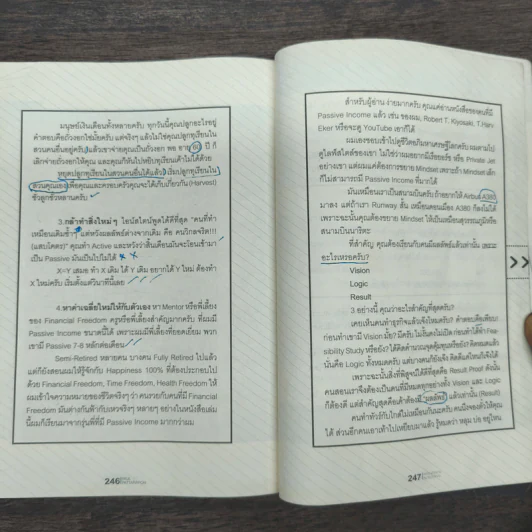 มนุษย์เงินเดือนทั้งหลายครับ ทุกวันนี้คุณปลูกอะไรอยู่
คำตอบคือถั่วงอกใช่มั้ยครับ แต่จริงๆ แล้วไม่ใช่คุณปลูกทุเรียนใน
สวนคนอื่นอยู่ครับ แล้วเขาจ่ายคุณเป็นถั่วงอก พอ อายุ 60 ปี ก็
เลิกจ่ายถั่วงอกให้คุณ และคุณก็หันไปหยิบทุเรียนเค้าไม่ได้ด้วย
หยุดปลูกทุเรียนในสวนคนอื่นได้แล้ว เริ่มปลูกทุเรียนใน
สวนคุณเอง เพื่อคุณและครอบครัวคุณจะได้เก็บเกี่ยวกัน (Harvest)
ชั่วลูกชั่วหลานครับ
3.กล้าทำสิ่งใหม่ๆ ไอน์สไตน์พูดได้ดีที่สุด "คนที่ทำ
เหมือนเดิมซ้ำๆ แต่หวังผลลัพธ์ต่างจากเดิม คือ คนวิกลจริต!!!
(แสบโคตร)" คุณทำ Active และหวังว่าสิ้นเดือนมันจะโอนเข้ามา
เป็น Passive มันเป็นไปไม่ได้
X=Y เสมอ ทำ X เดิม ได้ Y เดิม อยากได้ Y ใหม่ ต้องทำ
X ใหม่ครับ เริ่มตั้งแต่วินาทีนี้เลย
4.หาค่าเฉลี่ยใหม่ให้กับตัวเอง หา Mentor หรือพี่เลี้ยง
ของ Financial Freedom ครูหรือพี่เลี้ยงสำคัญมากครับ ที่ผมมี
Passive Income ขนาดนี้ได้ เพราะผมมีพี่เลี้ยงที่ยอดเยี่ยม พวก
เขามี Passive 7-8 หลักต่อเดือน
Semi-Retired หลายคน บางคน Fully Retired ไปแล้ว
แต่ก็ยังสอนผมให้รู้จักกับ Happiness 100% ที่ต้องประกอบไป
ด้วย Financial Freedom, Time Freedom, Health Freedom ให้
ผมเข้าใจความหมายของชีวิตจริงๆ ว่า คนรวยกับคนที่มี Financial
Freedom มันต่างกันฟ้ากับเหวจริงๆ หลายๆ อย่างในหนังสือเล่ม
นี้ผมก็เรียนมาจากรุ่นพี่ที่มี Passive Income มากกว่าผม
246
สำหรับผู้อ่าน ง่ายมากครับ คุณแค่อ่านหนังสือของคนที่มี
Passive Income แล้ว เช่น ของผม, Robert T. Kiyosaki, T.Harv
Eker หรือจะดู YouTube เอาก็ได้
ผมเองชอบเข้าไปดูชีวิตอภิมหาเศรษฐีโลกครับ ผมตามไป
ดูไลฟ์สไตล์ของเขา ไม่ใช่ว่าผมอยากมีเรือยอร์ช หรือ Private Jet
อย่างเขา แต่ผมแค่ต้องการขยาย Mindset เพราะถ้า Mindset เล็ก
ก็ไม่สามารถมี Passive ที่มากได้
มันเหมือนเราเป็นสนามบินครับ ถ้าอยากให้ Airbus A380
มาลง แต่ถ้าเรา Runway สั้น เหมือนคอนเมือง A380 ก็ลงไม่ได้
เพราะฉะนั้นคุณต้องขยาย Mindset ให้เป็นเหมือนสุวรรณภูมิหรือ
สนามบินนาริตะ
ที่สำคัญ คุณต้องเรียนกับคนมีผลลัพธ์แล้วเท่านั้น เพราะ
อะไรเหรอครับ?
Vision
Logic
Result
3 อย่างนี้ คุณว่าอะไรสำคัญที่สุดครับ?
เคยเห็นคนทำธุรกิจแล้วเจ๊งไหมครับ? คำตอบคือเพียบ!
ก่อนทำเขามี Vision มั้ย? มีครับ ไม่งั้นคงไม่เปิด ก่อนทำได้ทำ Fea-
sibility Study หรือยัง? ได้คิดคำนวณจุดคุ้มทุนหรือยัง? คิดหมดแล้ว
นั่นคือ Logic ทั้งหมดครับ แต่บางคนก็ยังเจ๊ง คิดดีแค่ไหนก็เจ๊งได้
เพราะฉะนั้นสิ่งที่พิสูจน์ได้ดีที่สุดคือ Result Proof ดังนั้น
คนสอนเราจึงต้องเป็นคนที่มีหมดทุกอย่างทั้ง Vision และ Logic
ก็ต้องดี แต่สำคัญสุดคือเค้าต้องมี "ผลลัพธ์" แล้วเท่านั้น (Result)
คนทำทัวร์กับไกด์ไม่เหมือนกันนะครับ คนมีเงินจริงทำให้คุณ
ได้ ส่วนอีกคนเอาเท้าไปเหยียบมาแล้ว รู้หมดว่า หลุม บ่อ อยู่ไหน
247